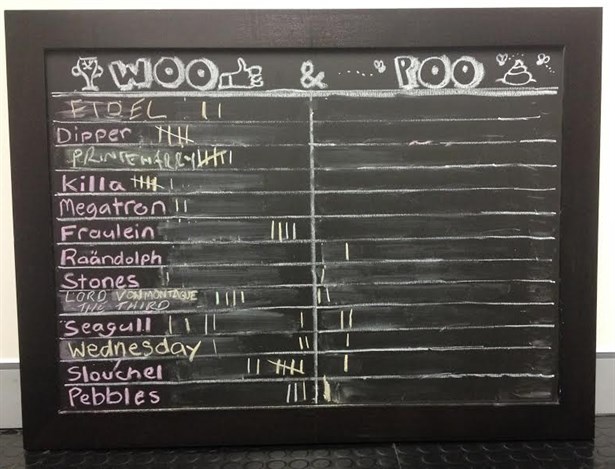 WOO & POO
FIDEL
Dipper
PRINCE HARRY
Killa
Megatron
Fraulein
Raändolph
Stones
LORD VON MONTAGUE
THE THIRD
Seagull
Wednesday
Slouchel
Pebbles